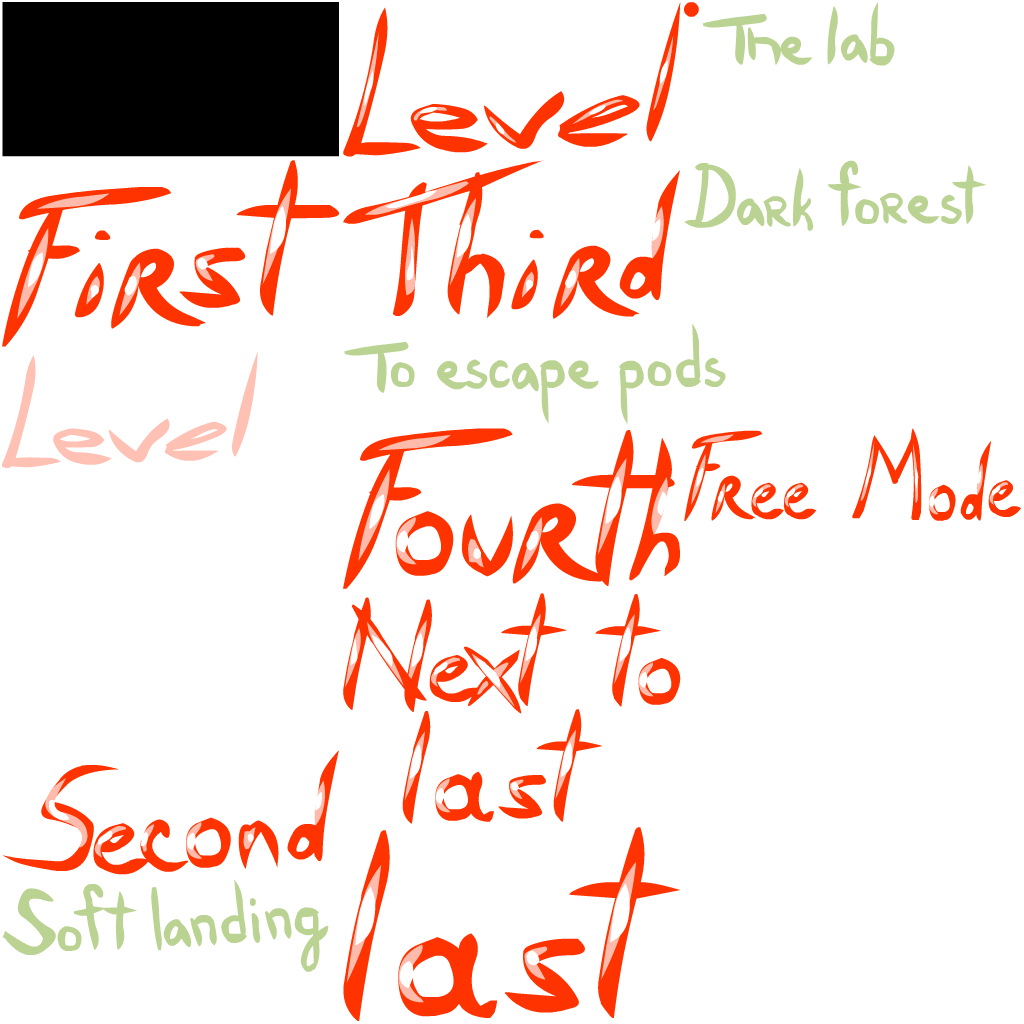 Level
The lab
First
Third
Dark forest
Level
To escape pods
Fourth
Free Mode
Next to
last
Second
Soft landing
last